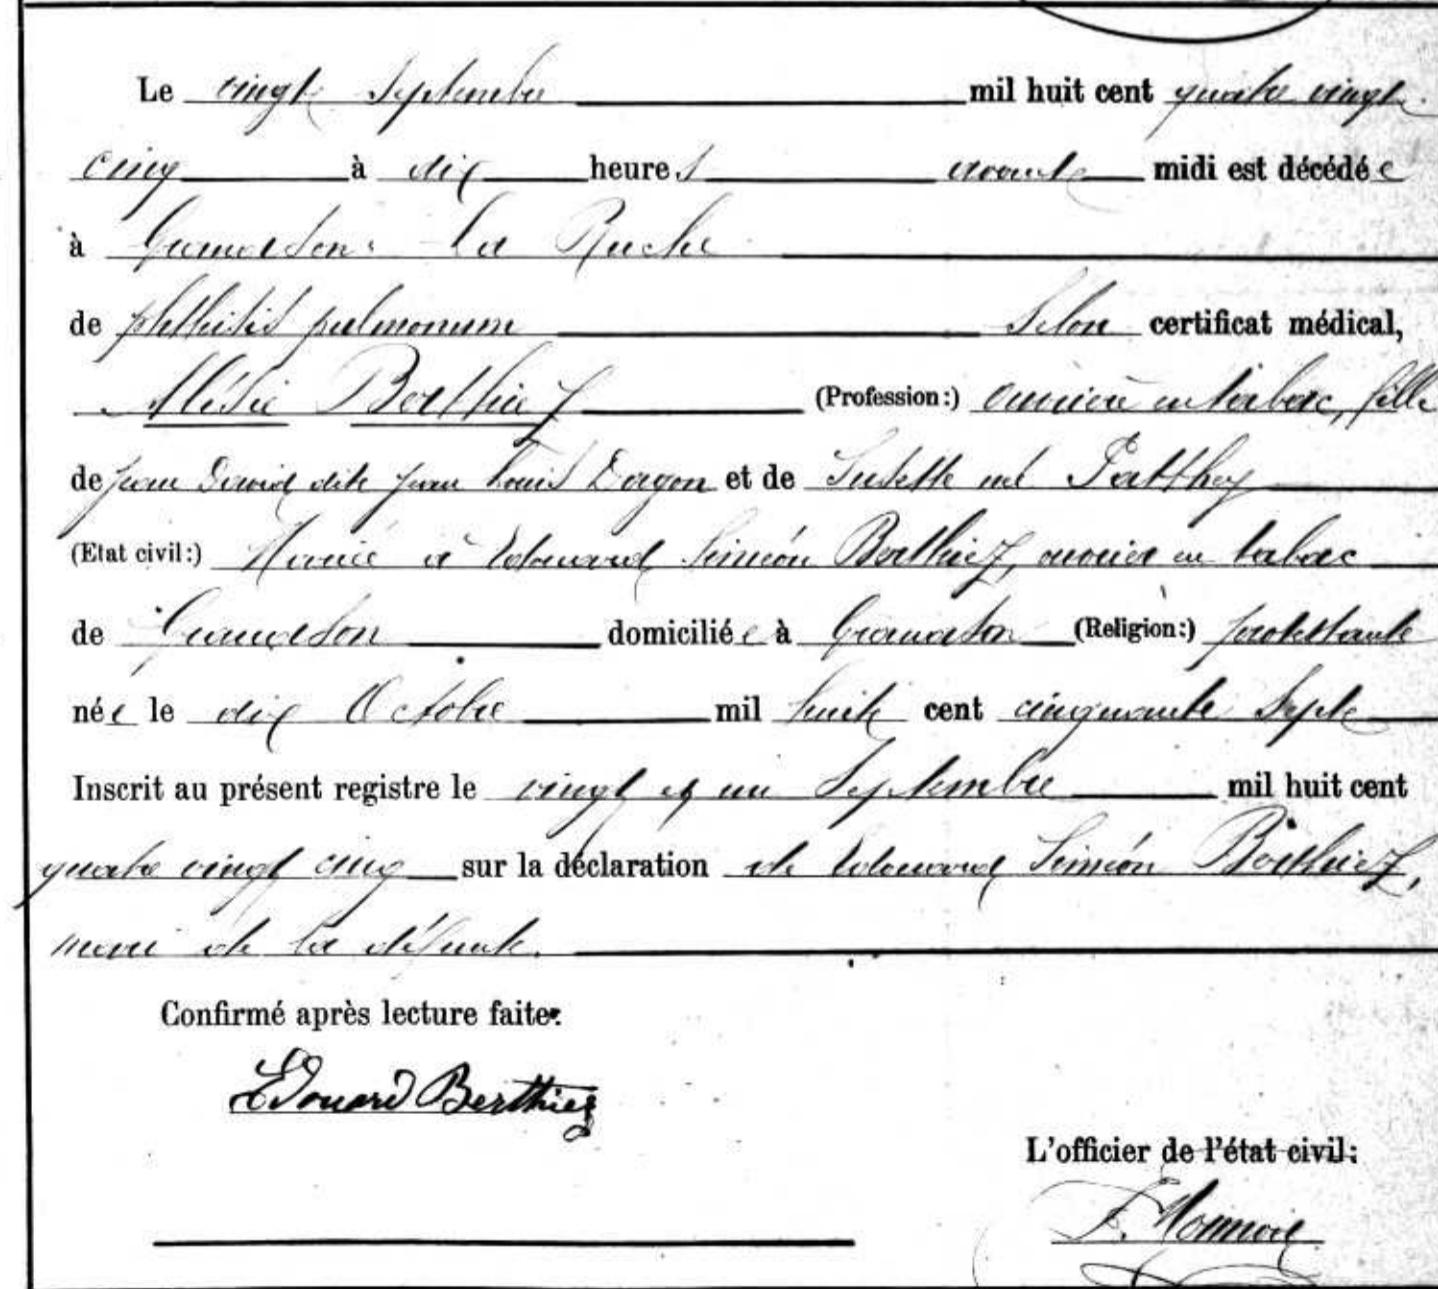 Le vingt Septembre mil huit cent quatre vingt
cinq à dix heures avant midi est décédée
à Grandson: La Ruche
de phthisis pulmonum Selon certificat médical,
Elésie Berthiez (Profession:) ouvrière en tabac, fille
de Jean David dit Jean Louis Dagon et de Susette né Patthey
(Etat civil:) Mariée à Edouard Siméon Berthiez, ouvrier en tabac
de Grandson domiciliée à Grandson (Religion:) protestante
née le dix Octobre mil huit cent cinquante Sept
Inscrit au présent registre le vingt et un Septembre mil huit cent
quatre vingt cinq sur la déclaration de Edouard Siméon Berthiez,
mari de la défunte.
Confirmé après lecture faite:
Edouard Berthiez
L'officier de l'état civil: